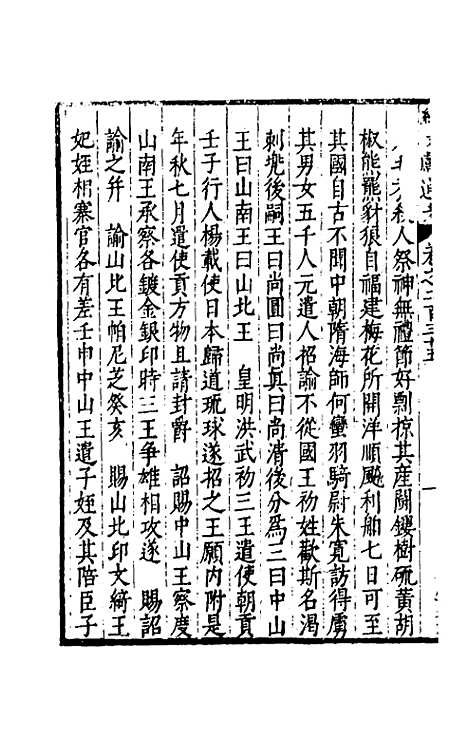 續文獻通考 卷之二百三十五
人祭神無禮節好剽掠其産鬭鏤樹硫黄胡
椒能羆豺狼自福建梅花所開洋順颷利舶七日可至
其國自古不聞中朝隋海師何蠻羽騎尉朱寛訪得虜
其男女五千人元遣人招諭不從國王初姓歡斯名渇
刺兜後嗣王曰尚圓曰尚真曰尚清後分爲三曰中山
王曰山南王曰山北王 皇明洪武初三王遣使朝貢
壬子行人楊載使日本歸道琉球遂招之王願内附是
年秋七月遣使貢方物且請封爵 詔賜中山王察度
山南王承察各鍍金銀印時三王爭雄相攻遂 賜詔
諭之幷 諭山北王帕尼芝癸亥 賜山北印文綺王
妃姪相寨官各有差壬申中山王遣子姪及其陪臣子